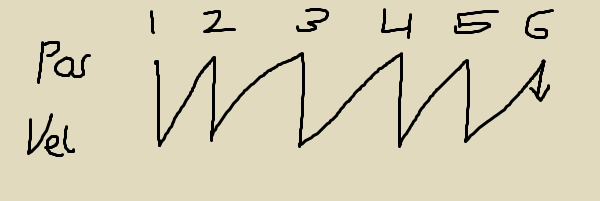 1 2 3 4 5 6
Pos
Vel